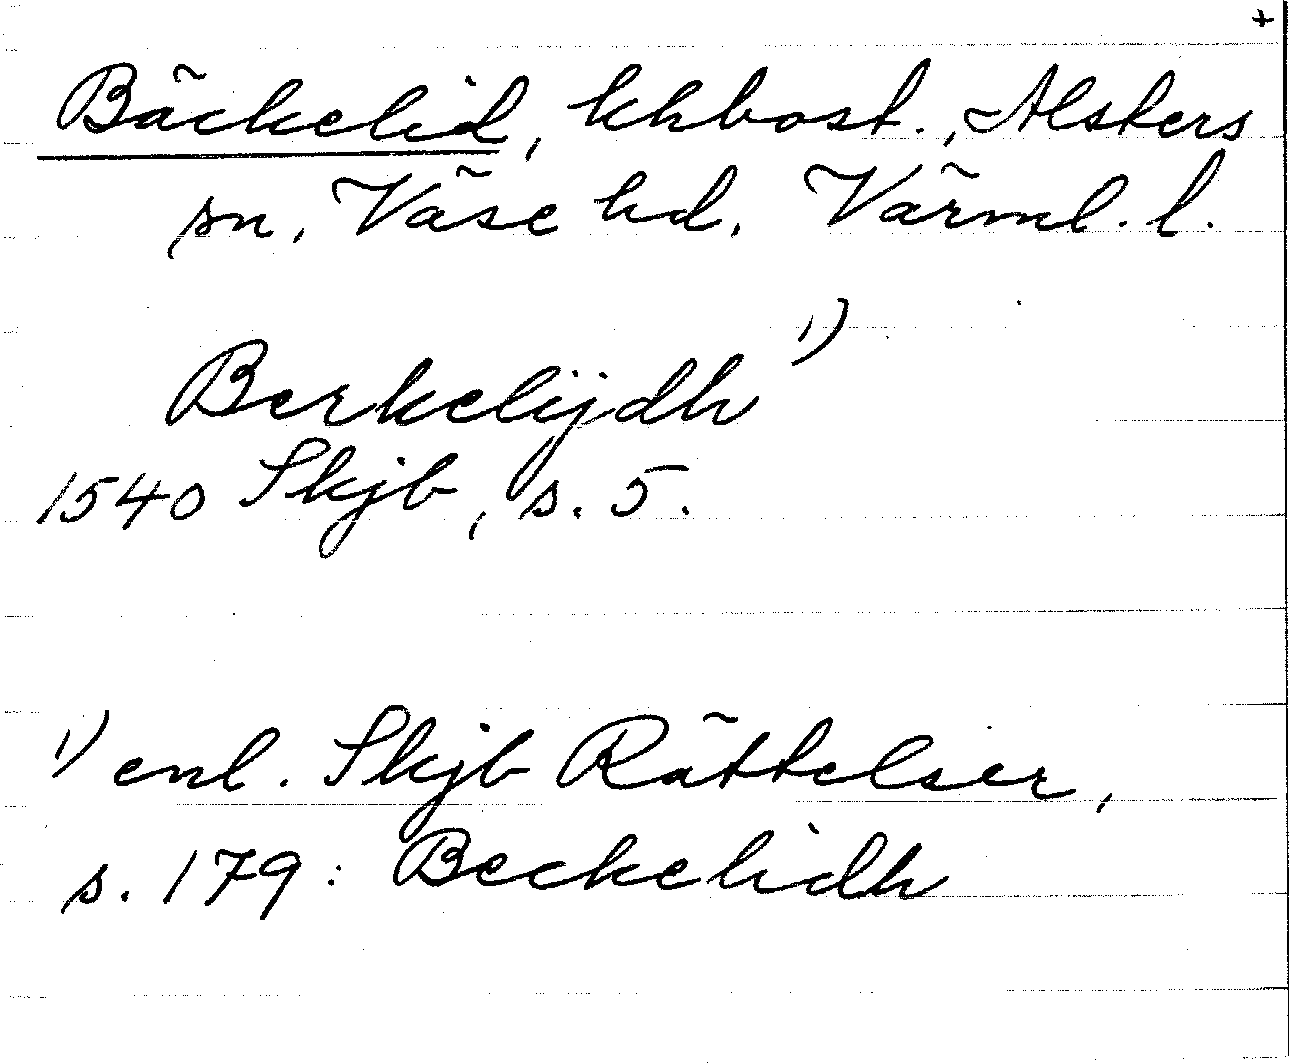 +
Bäckelid, khbost., Alsters
sn, Väse hd, Värml. l.
Berkelijdh ¹⁾
1540 Skjb, s. 5.
¹⁾ enl. Skjb Rättelser,
s. 179: Beckelidh